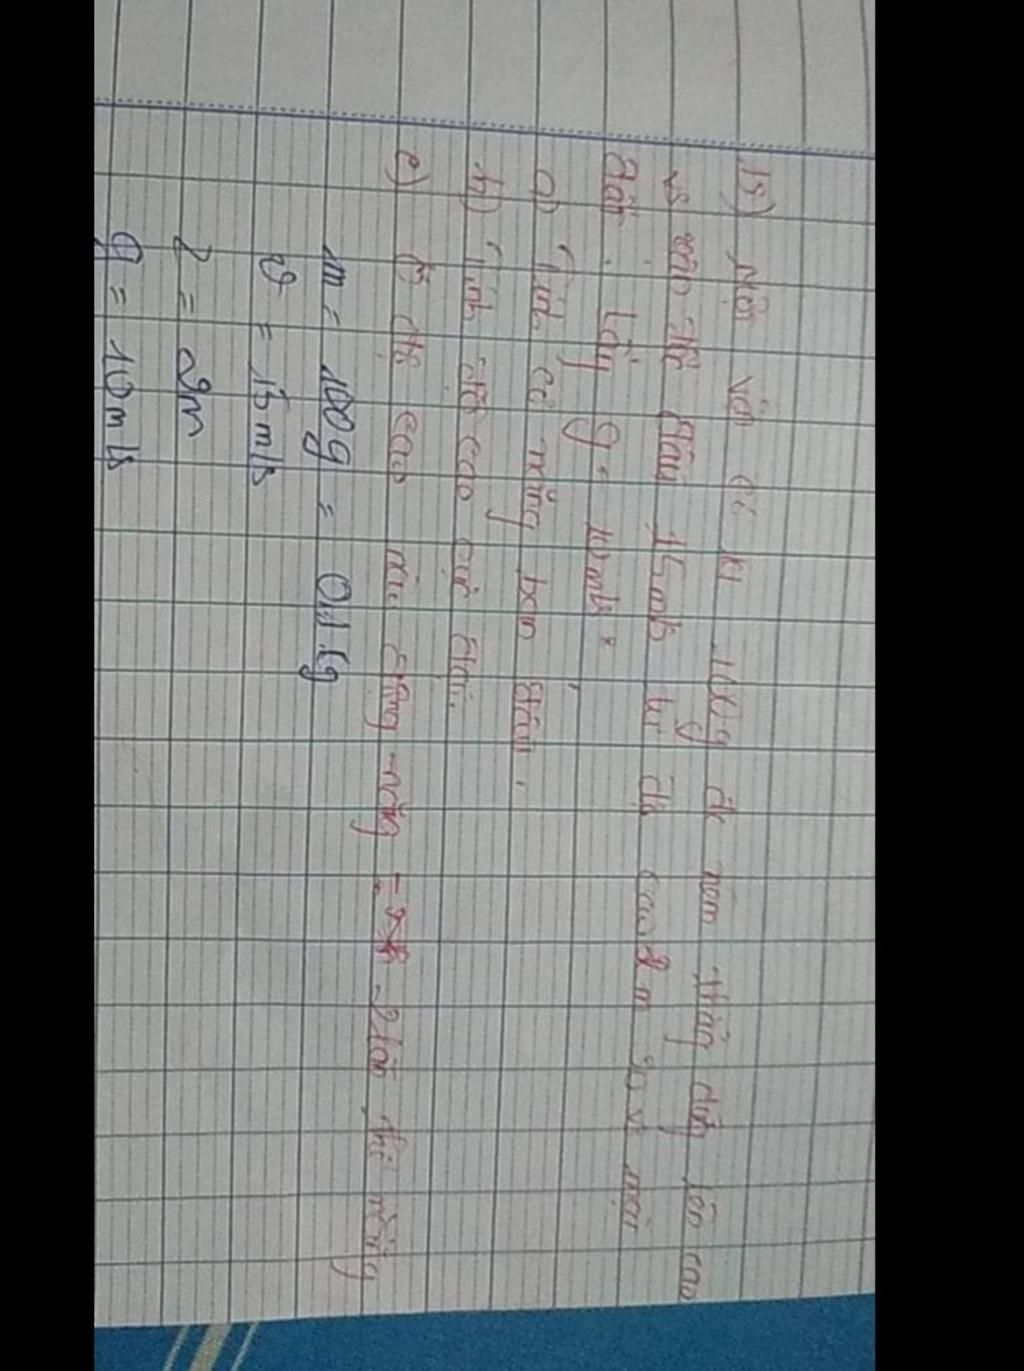 15) Một vật có kl 100g đc ném thẳng đứng lên cao
vs vận tốc đầu 15m/s từ độ cao 2m so vs mặt
đất. Lấy g = 10m/s²
a) Tính cơ năng ban đầu.
b) Tính độ cao cực đại.
c) Ở độ cao nào động năng = 2 lần thế năng
m = 100g = 0,1 kg
v = 15m/s
2 = 2m
g = 10m/s